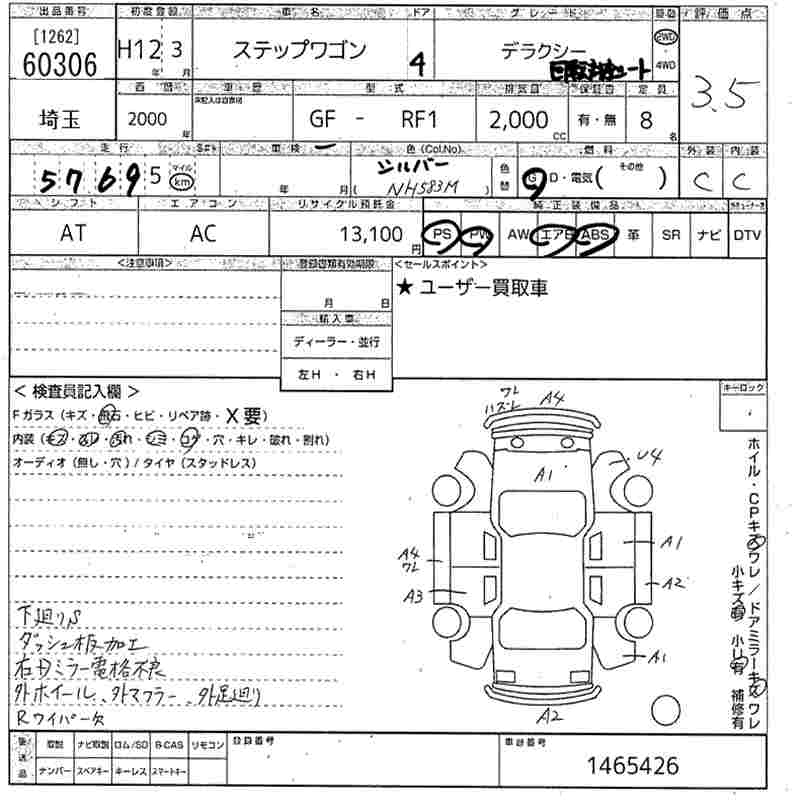 出品番号 初度登録 車名 ドア グレード 駆動 評価点
[1262]
60306 H12年 3月 ステップワゴン 4 デラクシー 2WD 4WD 3.5
回転対座シート
西暦 車歴 型式 排気量 保証書 定員
埼玉 2000年 未記入は自家用 GF - RF1 2,000cc 有・無 8名
走行 車検 色(Col,No) 燃料 外装 内装
57695 マイル km 年 月 シルバー ( NH583M ) 色替 G・D・電気( その他 ) C C
シフト エアコン リサイクル預託金 純正装備品
AT AC 13,100円 PS PW AW エアB ABS 革 SR ナビ DTV
<注意事項> 登録書類有効期限 <セールスポイント>
月 日 ★ ユーザー買取車
輸入車
ディーラー・並行
左H ・ 右H
< 検査員記入欄 > キーロック
Fガラス (キズ・飛石・ヒビ・リペア跡・X要)
内装 (キズ・ヨゴレ・汚れ・シミ・コゲ・穴・キレ・破れ・割れ)
オーディオ (無し・穴) / タイヤ (スタッドレス)
ワレ
ハズレ A4
A1 U4
A4
ワレ A1
A3 A2
A1
A2
ホイル・CPキズワレ/ドアミラーキズワレ
小キズ有 小凹有 補修有
下廻りS
ダッシュ板加工
右Dミラー電格不良
外ホイール、外マフラー、外足廻り
Rワイパー欠
後送品 取説 ナビ取説 ロム/SD B-CAS リモコン 登録番号 車台番号
ナンバー スペアキー キーレス スマートキー 1465426